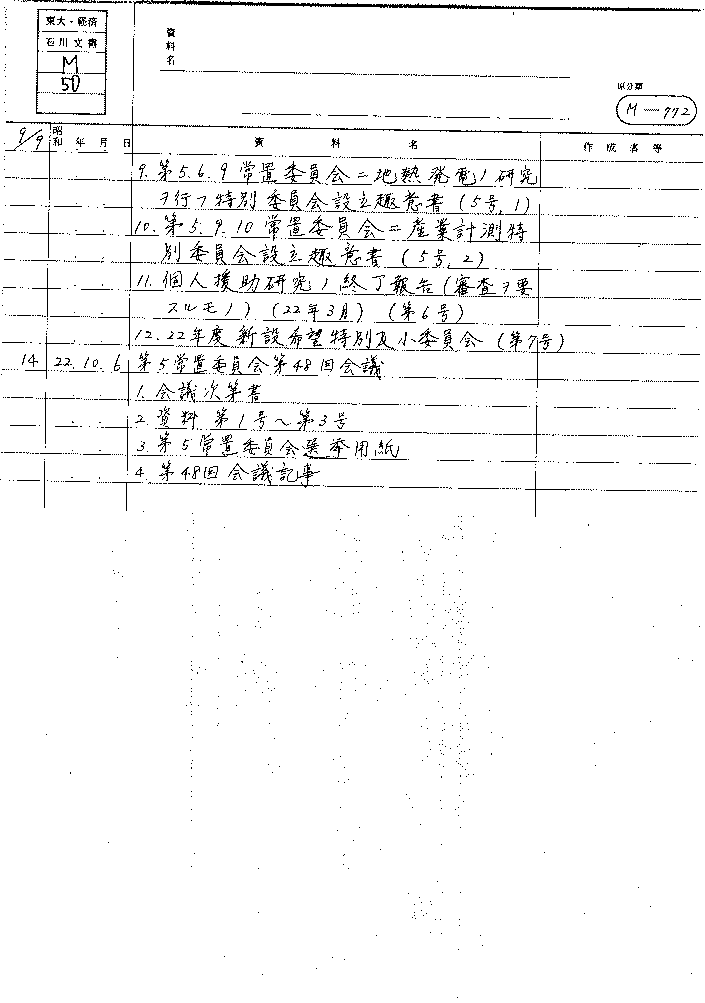 東大・経済
石川文書
M
50
資料名
原分類
M-772
9/9
昭和 年 月 日 資料名 作成者等
9. 第5.6.9常置委員会ニ地熱発電ノ研究
ヲ行フ特別委員会設立趣意書 (5号, 1)
10. 第5.9.10常置委員会ニ産業計測特
別委員会設立趣意書 (5号, 2)
11. 個人援助研究ノ終了報告(審査ヲ要
スルモノ) (22年3月) (第6号)
12. 22年度新設希望特別及小委員会 (第7号)
14 22.10.6 第5常置委員会第48回会議
1. 会議次第書
2. 資料 第1号～第3号
3. 第5常置委員会選挙用紙
4. 第48回会議記事